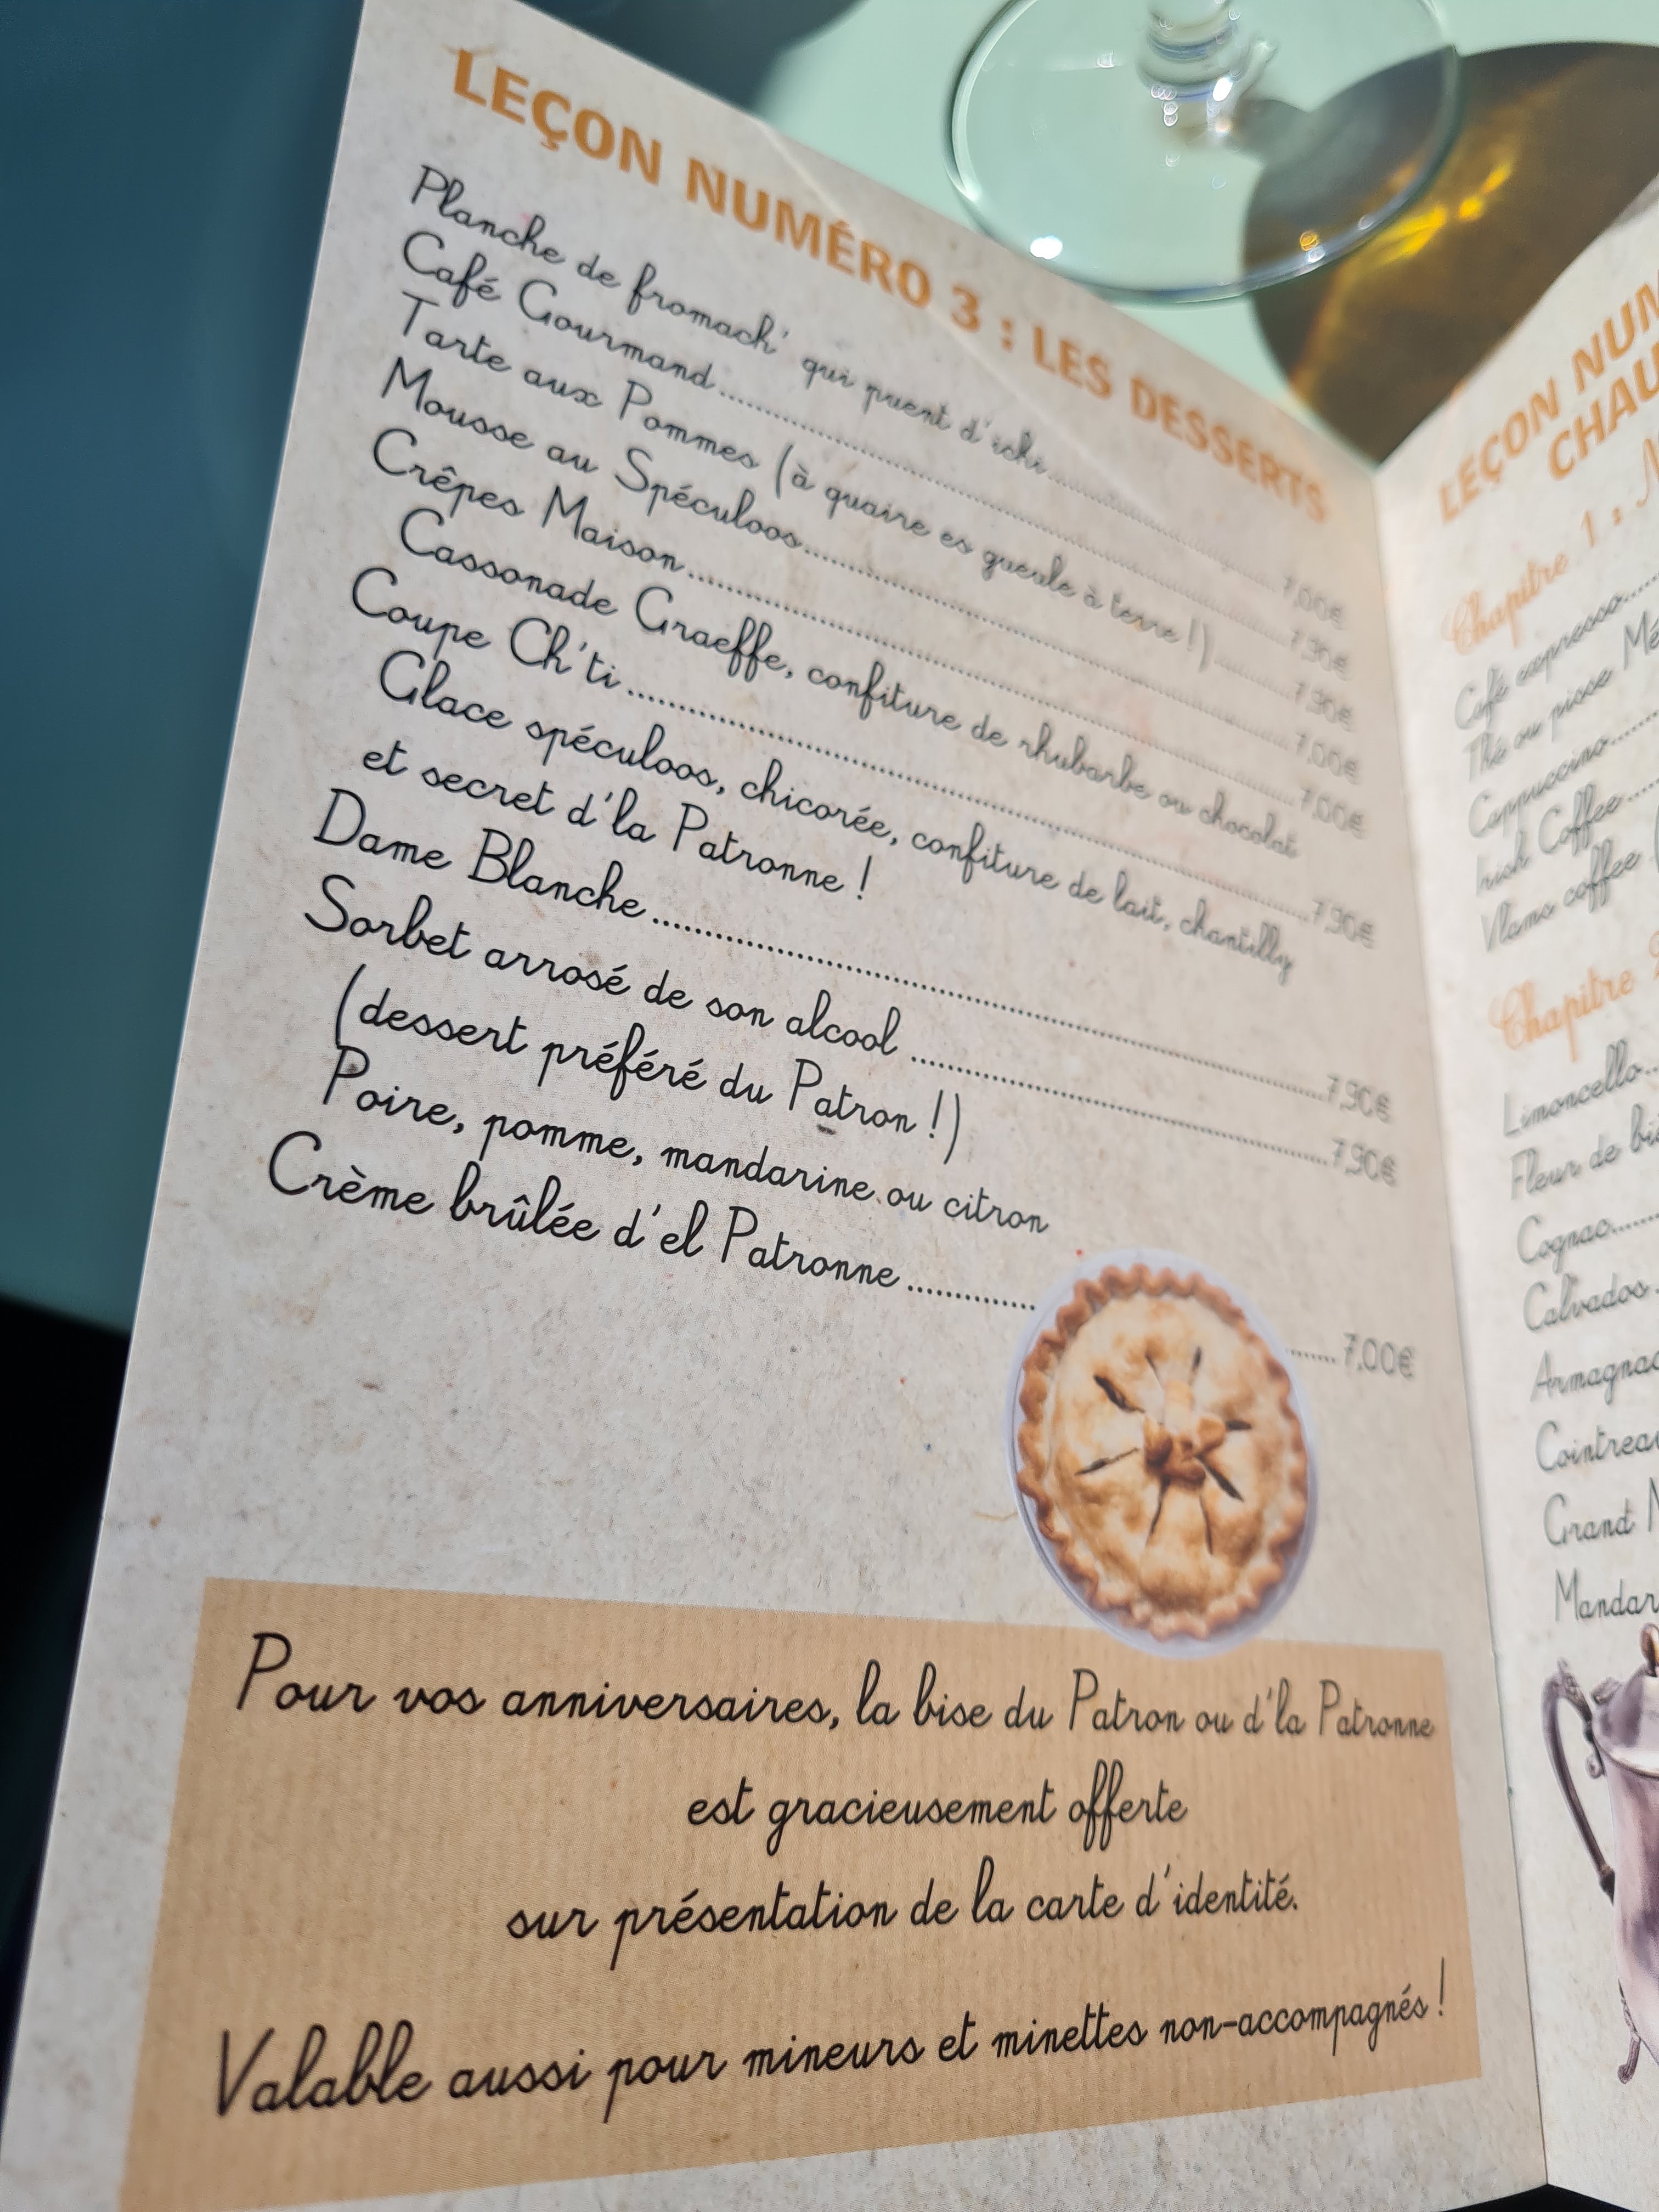 LEÇON NUMÉRO 3 : LES DESSERTS
Planche de fromach' qui puent d'ichi..........7,00€
Café Gourmand..........7,90€
Tarte aux Pommes (à quaire es gueule à terre !)..........7,90€
Mousse au Spéculoos..........7,00€
Crêpes Maison..........7,00€
Cassonade Graeffe, confiture de rhubarbe ou chocolat
Coupe Ch'ti..........7,90€
Glace spéculoos, chicorée, confiture de lait, chantilly
et secret d'la Patronne !
Dame Blanche..........7,90€
Sorbet arrosé de son alcool..........7,90€
(dessert préféré du Patron !)
Poire, pomme, mandarine ou citron
Crème brûlée d'el Patronne..........7,00€
Pour vos anniversaires, la bise du Patron ou d'la Patronne
est gracieusement offerte
sur présentation de la carte d'identité.
Valable aussi pour mineurs et minettes non-accompagnés !
LEÇON NUM
CHAU
Chapitre 1 :
Café expresso
Thé ou pisse Mé
Cappuccino
Irish Coffee
Vlams coffee (
Chapitre
Limoncello
Fleur de bi
Cognac
Calvados
Armagnac
Cointreau
Grand
Mandar